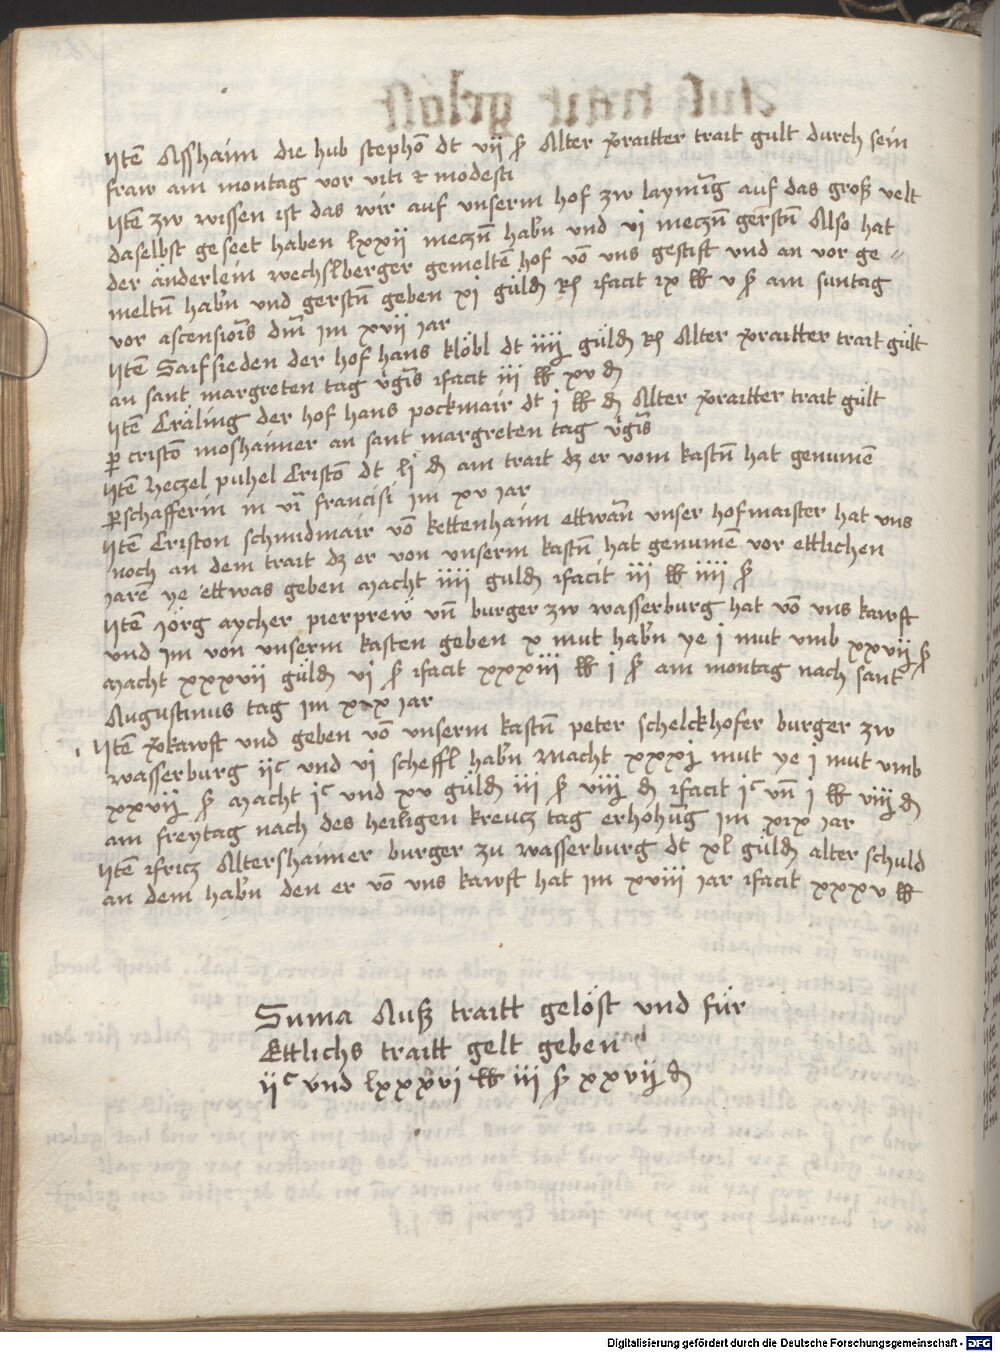 Item Asshaim die hub stephō dt vij ß Alter v̄raitter trait gült durch sein
fraw am montag vor viti et modesti
Item zw wissen ist das wir auf vnserm hof zw laymīg auf das groß velt
daselbst geseet haben lxxij meczn̄ habn̄ vnd vj meczn̄ gerstn̄ Also hat
der änderlein wechslberger gemeltē hof vō vns gestift vnd an vor ge-
meltn̄ habn̄ vnd gerstn̄ geben xj güld rh facit ix lb v ß am suntag
vor ascensiōis dn̄i im xvij iar
Item Saifsieden der hof hans klöbl dt iiij güld rh Alter v̄raitter trait gült
an sant margreten tag v̄gīs facit iij lb xv d
Item Cräling der hof hans pockmair dt j lb d Alter v̄raitter trait gült
p cristō moshaimer an sant margreten tag v̄gīs
Item Heczel puhel Cristō dt lj d am trait dz er vom kastn̄ hat genumē
p schafferin in vī francisi im xv iar
Item Criston schmidmair vō kettenhaim ettwan̄ vnser hofmaister hat vns
noch an dem trait dz er von vnserm kastn̄ hat genumē vor ettlichen
iarē ye ettwas geben macht iiij guld facit iij lb iiij ß
Item Jörg aycher pierprew vn̄ burger zw wasserburg hat vō vns kawft
vnd im von vnserm kasten geben x mut habn̄ ye j mut vmb xxvij ß
macht xxxvij güld vj ß facit xxxiii lb j ß am montag nach sant
Augustinus tag im xix iar
Item v̄kawft vnd geben vō vnserm kastn̄ peter schelckhofer burger zw
wasserburg ijᶜ vnd vj scheffl habn̄ macht xxxj mut ye j mut vmb
xxvij ß macht jᶜ vnd xv güld iij ß viij d facit jᶜ vn̄ j lb viij d
am freytag nach des heiligen kreucz tag erhohūg im xix iar
Item fricz Altershaimer burger zu wasserburg dt xl güld alter schuld
an dem habn̄ den er vō vns kawft hat im xviii iar facit xxxv lb
Suma Auß traitt gelöst vnd für
Ettlichs traitt gelt geben
ijᶜ vnd lxxxvi lb iij ß xxvij d
Digitalisierung gefördert durch die Deutsche Forschungsgemeinschaft - DFG